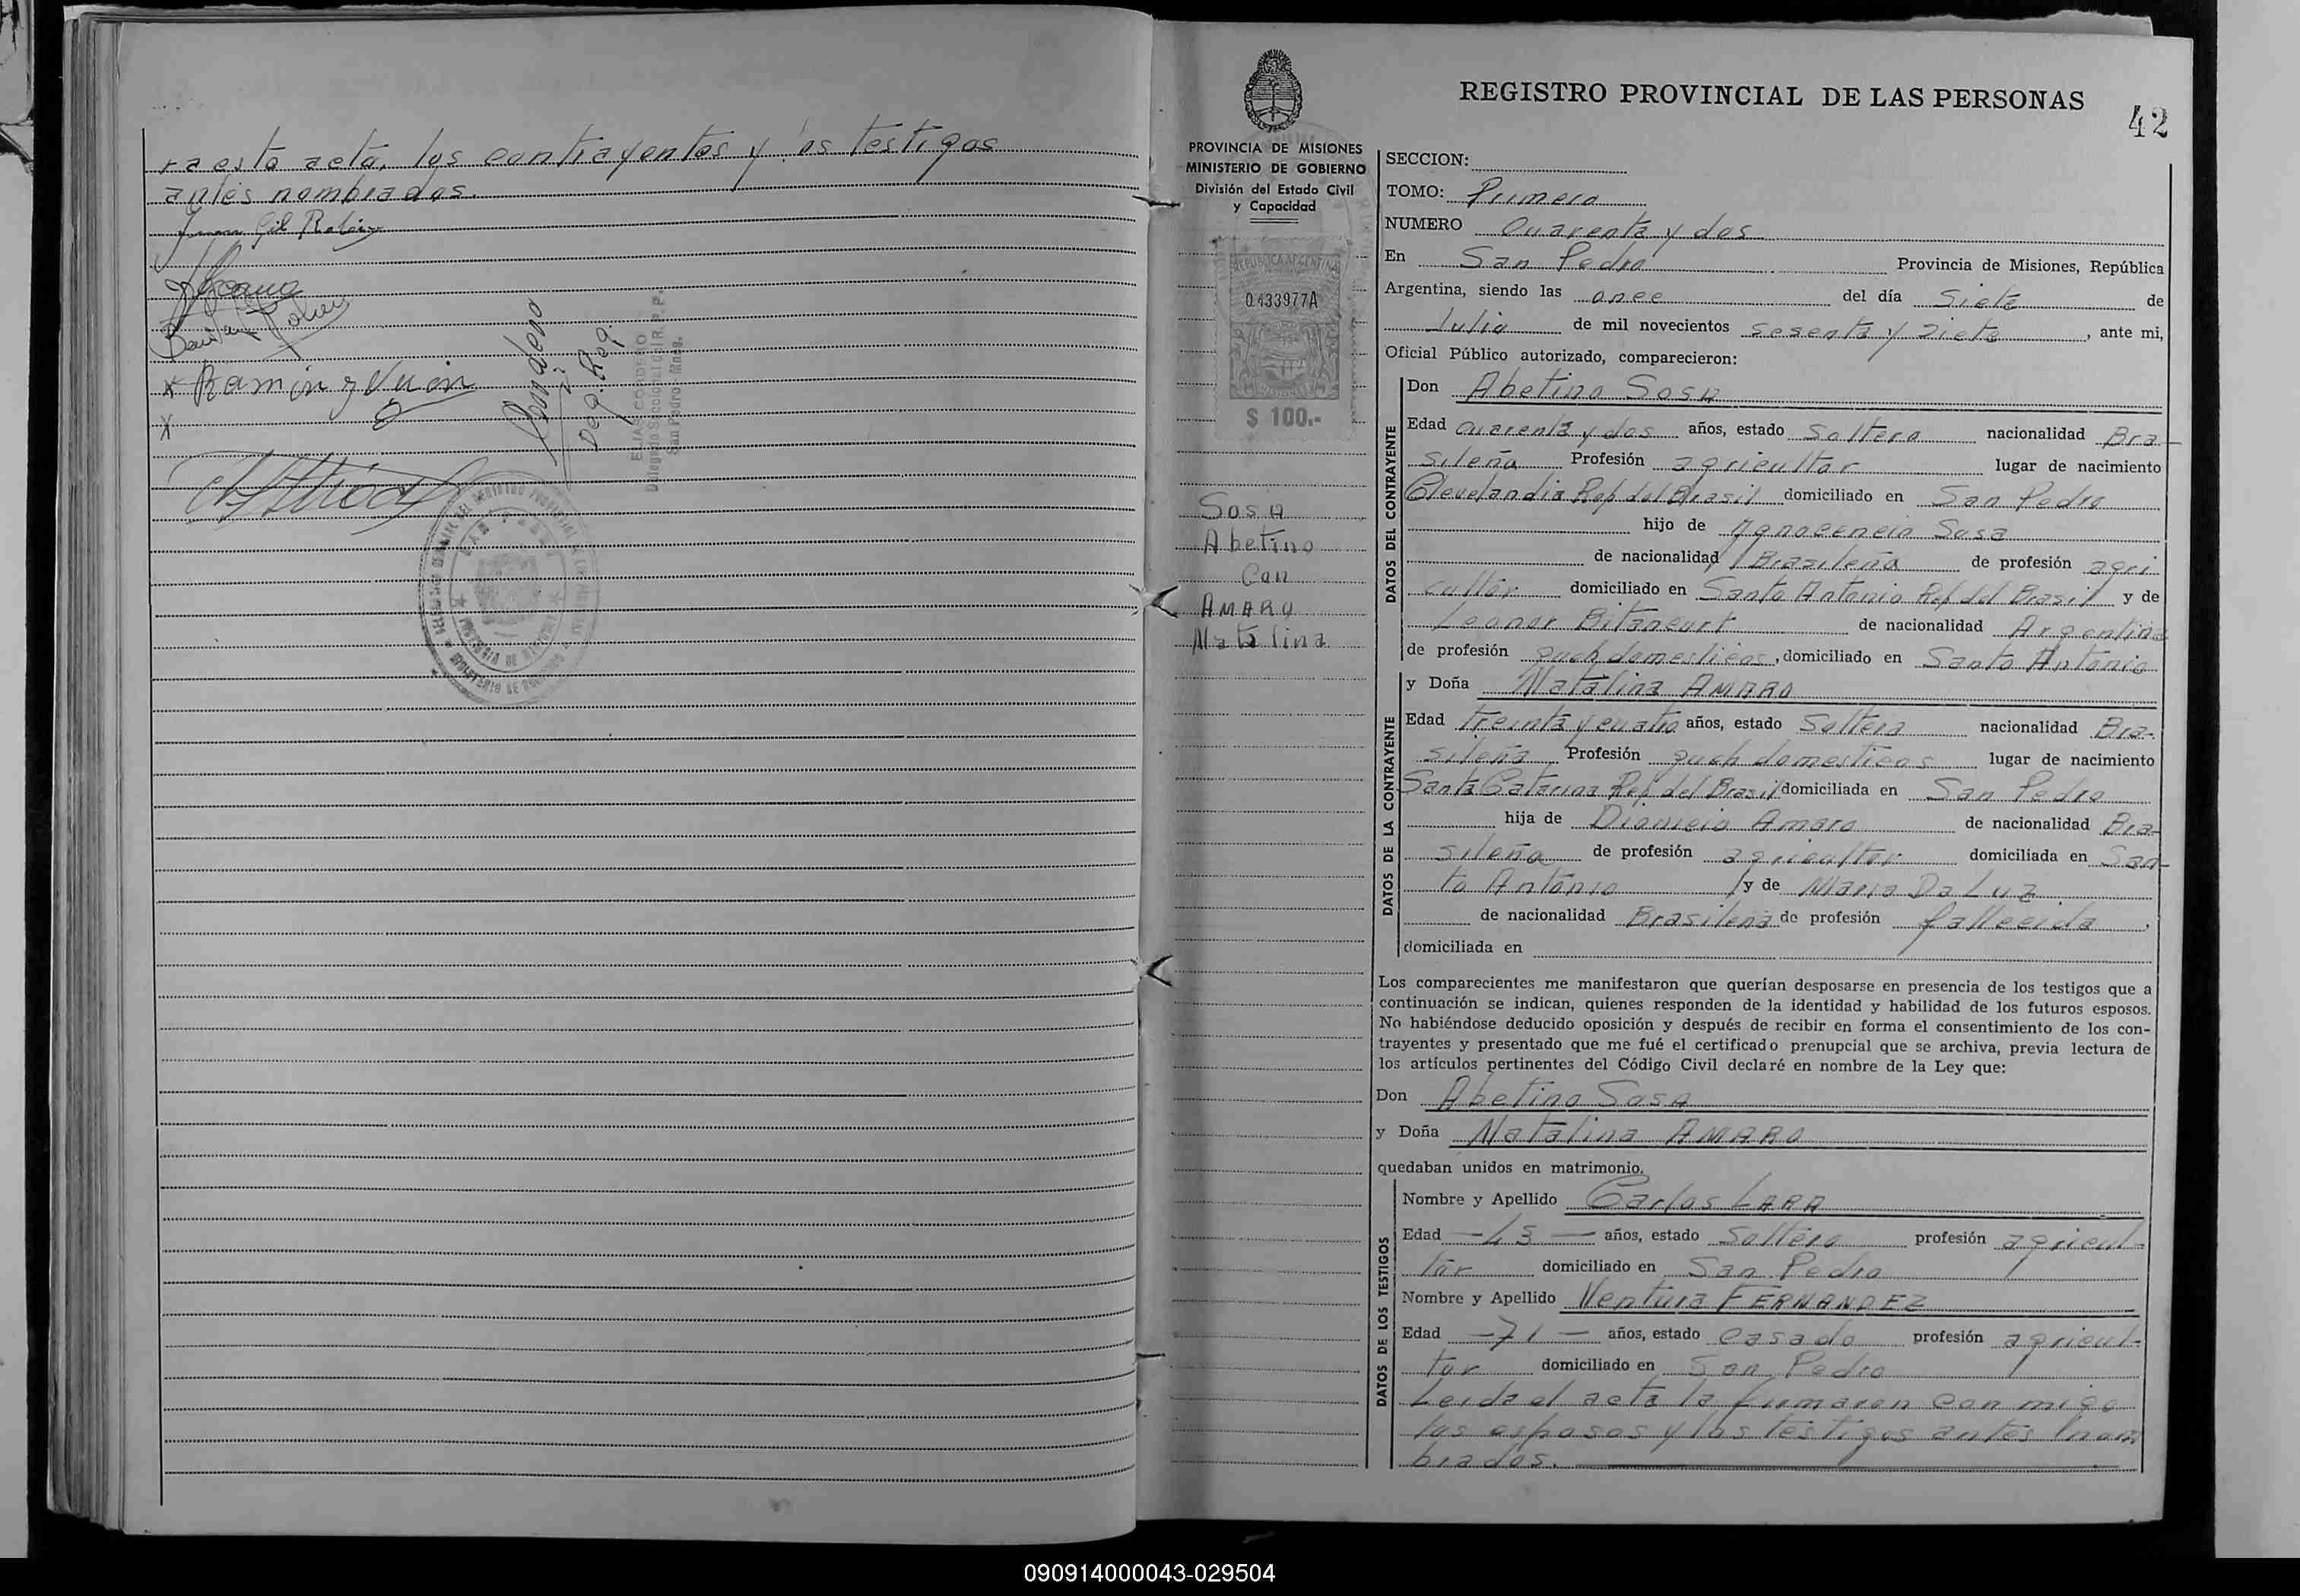 ra esta acta, los contrayentes y los testigos
antes nombrados.
Juan Gil
Ramón
Cordero
Deg. Reg.
ELIAS CORDERO
Delegado Seccional del R.P.P.
San Pedro - Mnes.
PROVINCIA DE MISIONES
MINISTERIO DE GOBIERNO
División del Estado Civil
y Capacidad
REPUBLICA ARGENTINA
0.433977A
MISIONES
$ 100.-
Sosa
Abetino
Con
AMARO
Natalina
REGISTRO PROVINCIAL DE LAS PERSONAS
42
SECCION:
TOMO: Primero
NUMERO Cuarenta y dos
En San Pedro Provincia de Misiones, República
Argentina, siendo las once del día Siete de
Julio de mil novecientos sesenta y siete, ante mi,
Oficial Público autorizado, comparecieron:
DATOS DEL CONTRAYENTE
Don Abetino SOSA
Edad Cuarenta y dos años, estado Soltero nacionalidad Bra-
sileña Profesión agricultor lugar de nacimiento
Clevelandia Rep. del Brasil domiciliado en San Pedro
hijo de Ygnocencio Sosa
de nacionalidad Brasileña de profesión agri
cultor domiciliado en Santo Antonio Rep. del Brasil y de
Leonor Bitancurt de nacionalidad Argentina
de profesión queh domesticos, domiciliado en Santo Antonio
DATOS DE LA CONTRAYENTE
y Doña Natalina AMARO
Edad treinta y cuatro años, estado Soltera nacionalidad Bra-
sileña Profesión queh domesticos lugar de nacimiento
Santa Catarina Rep. del Brasil domiciliada en San Pedro
hija de Dionicio Amaro de nacionalidad Bra-
sileña de profesión agricultor domiciliada en San-
to Antonio y de Maria Da Luz
de nacionalidad Brasilena de profesión fallecida.
domiciliada en
Los comparecientes me manifestaron que querían desposarse en presencia de los testigos que a
continuación se indican, quienes responden de la identidad y habilidad de los futuros esposos.
No habiéndose deducido oposición y después de recibir en forma el consentimiento de los con-
trayentes y presentado que me fué el certificado prenupcial que se archiva, previa lectura de
los artículos pertinentes del Código Civil declaré en nombre de la Ley que:
Don Abetino SOSA
y Doña Natalina AMARO
quedaban unidos en matrimonio.
DATOS DE LOS TESTIGOS
Nombre y Apellido Carlos LARA
Edad — 43 — años, estado Soltero profesión agricul-
tor domiciliado en San Pedro
Nombre y Apellido Ventura FERNANDEZ
Edad — 71 — años, estado casado profesión agricul-
tor domiciliado en San Pedro
Leida el acta la firmaron con migo
los esposos y los testigos antes nom
brados.
090914000043-029504